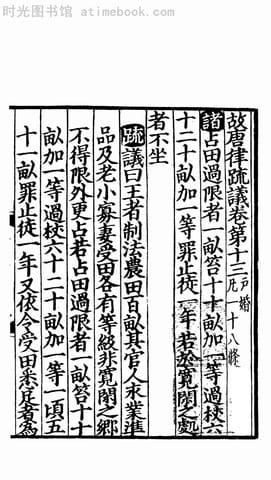 时光图书馆 - atimebook.com
故唐律疏議卷第十三 戶婚
凡一十八條
諸占田過限者一畝笞十十畝加一等過杖六
十二十畝加一等罪止徒一年若於寬閑之處
者不坐
疏議曰王者制法農田百畝其官人永業準
品及老小寡妻受田各有等級非寬閑之鄉
不得限外更占若占田過限者一畝笞十十
畝加一等過杖六十二十畝加一等一頃五
十一畝罪止徒一年又依令受田悉足者爲